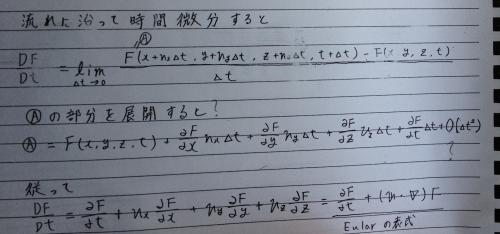 流れに沿って時間微分すると
Ⓐ
DF/Dt = lim Δt→0 F(x+nxΔt, y+nyΔt, z+nzΔt, t+Δt) - F(x, y, z, t) / Δt
Ⓐの部分を展開すると?
Ⓐ = F(x, y, z, t) + ∂F/∂x nxΔt + ∂F/∂y nyΔt + ∂F/∂z nzΔt + ∂F/∂t Δt + O(Δt²)
?
従って
DF/Dt = ∂F/∂t + nx ∂F/∂x + ny ∂F/∂y + nz ∂F/∂z = ∂F/∂t + (n・∇)F
Eularの表式